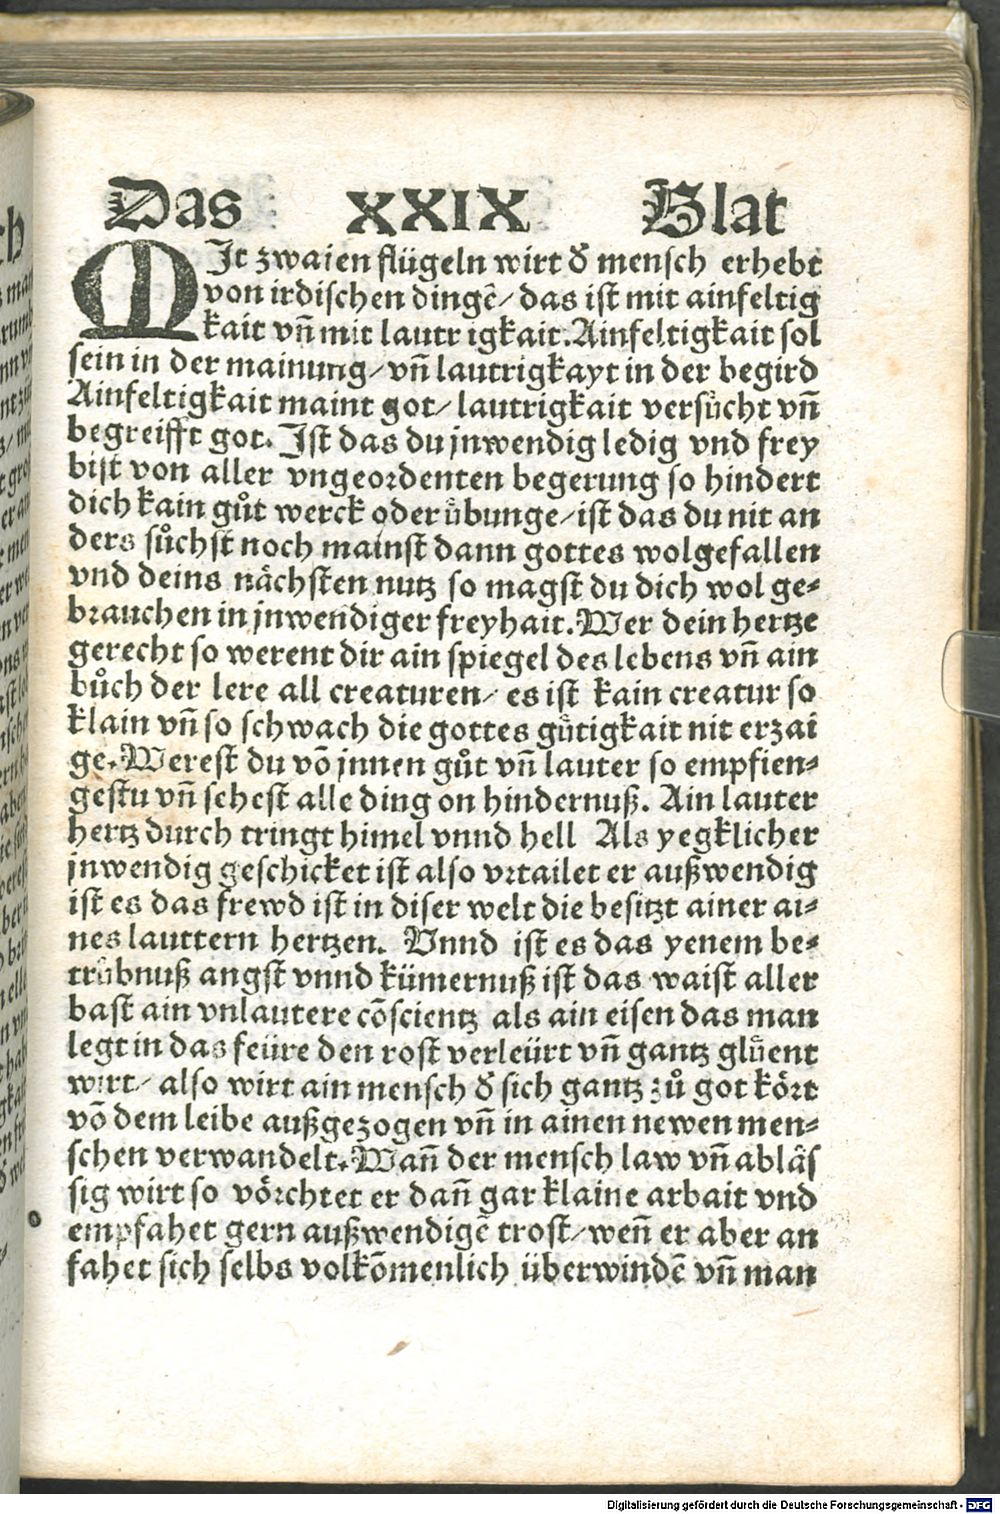 Das XXIX Blat
MIt zwaien flügeln wirt d̕ mensch erhebt
von irdischen dingē/ das ist mit ainfeltig
kait vn̄ mit lautrigkait. Ainfeltigkait sol
sein in der mainung/ vn̄ lautrigkayt in der begird
Ainfeltigkait maint got/ lautrigkait versůcht vn̄
begreifft got. Ist das du jnwendig ledig vnd frey
bist von aller vngeordenten begerung so hindert
dich kain gůt werck oder übunge/ ist das du nit an
ders sůchst noch mainst dann gottes wolgefallen
vnd deins nächsten nutz so magst du dich wol ge⸗
brauchen in jnwendiger freyhait. Wer dein hertze
gerecht so werent dir ain spiegel des lebens vn̄ ain
bůch der lere all creaturen/ es ist kain creatur so
klain vn̄ so schwach die gottes gütigkait nit erzai
ge. Werest du vō jnnen gůt vn̄ lauter so empfien⸗
gestu vn̄ sehest alle ding on hindernuß. Ain lauter
hertz durch tringt himel vnnd hell Als yegklicher
jnwendig geschicket ist also vrtailet er außwendig
ist es das frewd ist in diser welt die besitzt ainer ai⸗
nes lauttern hertzen. Vnnd ist es das yenem be⸗
trübnuß angst vnnd kümernuß ist das waist aller
bast ain vnlautere cōscientz als ain eisen das man
legt in das feüre den rost verleürt vn̄ gantz glüent
wirt/ also wirt ain mensch d̕ sich gantz zů got kört
vō dem leibe außgezogen vn̄ in ainen newen men⸗
schen verwandelt. Wan̄ der mensch law vn̄ abläs
sig wirt so vörchtet er dan̄ gar klaine arbait vnd
empfahet gern außwendigē trost/ wen̄ er aber an
fahet sich selbs volkōmenlich überwindē vn̄ man
Digitalisierung gefördert durch die Deutsche Forschungsgemeinschaft - DFG